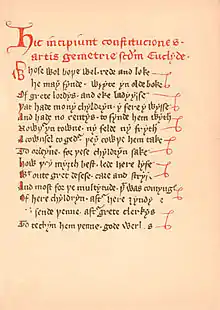 Hic incipiunt constituciones
artis gemetrie scdm Euclyde.
Whose wol bope wel rede and loke
he may fynde wryte yn olde boke
Of grete lordys and eke ladyysse
þat hade mony chyldryn y fere y wysse
And hade no rentys to fynde hem wyth
Nowþer yn towne ny felde ny fryth
A cownsel togeder þey cowþe hem take
To ordeyne for þese chyldryn sake
How þey myȝth best lede here lyfe
Withoute gret desese care and stryf
And most for þe multytude þat was comynge
Of here chyldryn after here ȝyndynge
sende þenne after grete clerkys
To techyn hem þenne gode werkys